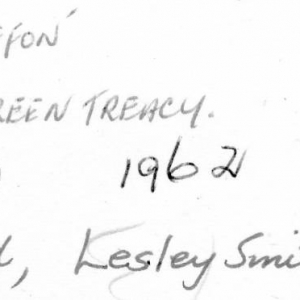 FFON'
REEN TREACY.
1962
Lesley Smi